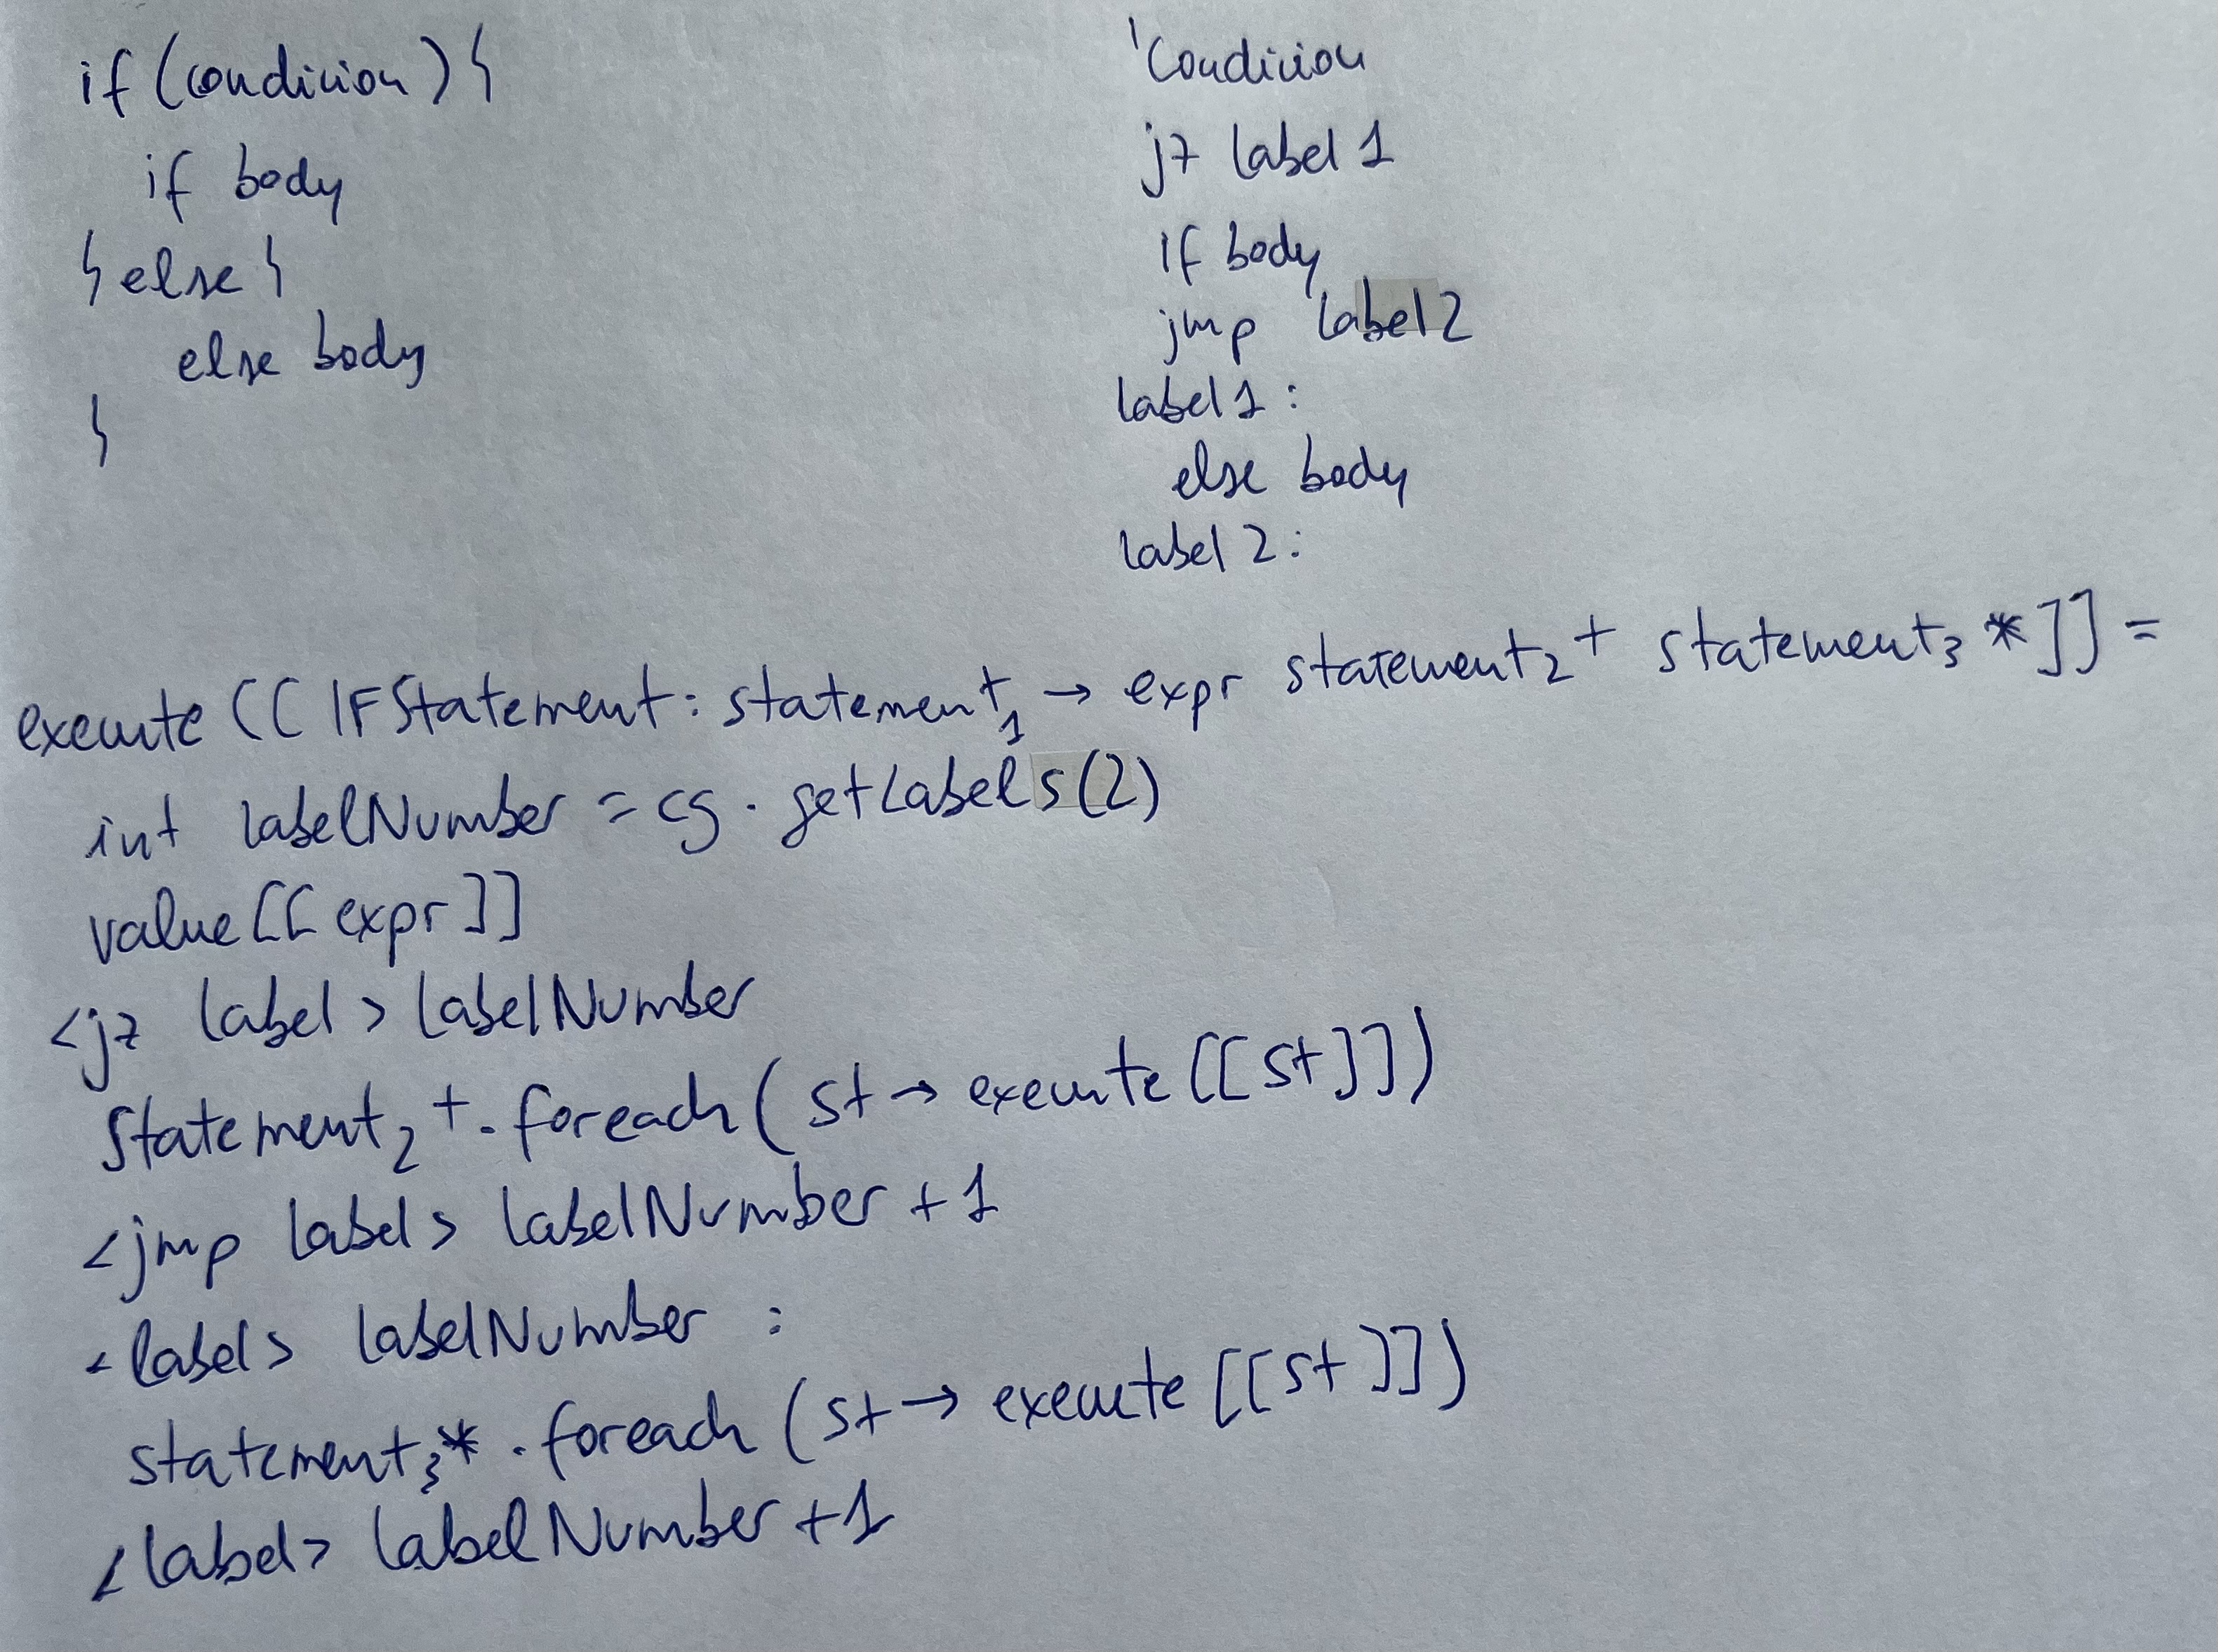 if (condicion) {
if body
} else {
else body
}
'Condicion
jz label 1
if body
jmp label 2
label 1 :
else body
label 2 :
execute [[ IFStatement : statement1 → expr statement2+ statement3* ]] =
int labelNumber = cg. getLabels(2)
value [[ expr ]]
<jz label> labelNumber
statement2+. foreach ( st → execute [[ st ]] )
<jmp label> labelNumber + 1
<label> labelNumber :
statement3* . foreach ( st → execute [[ st ]] )
<label> labelNumber + 1